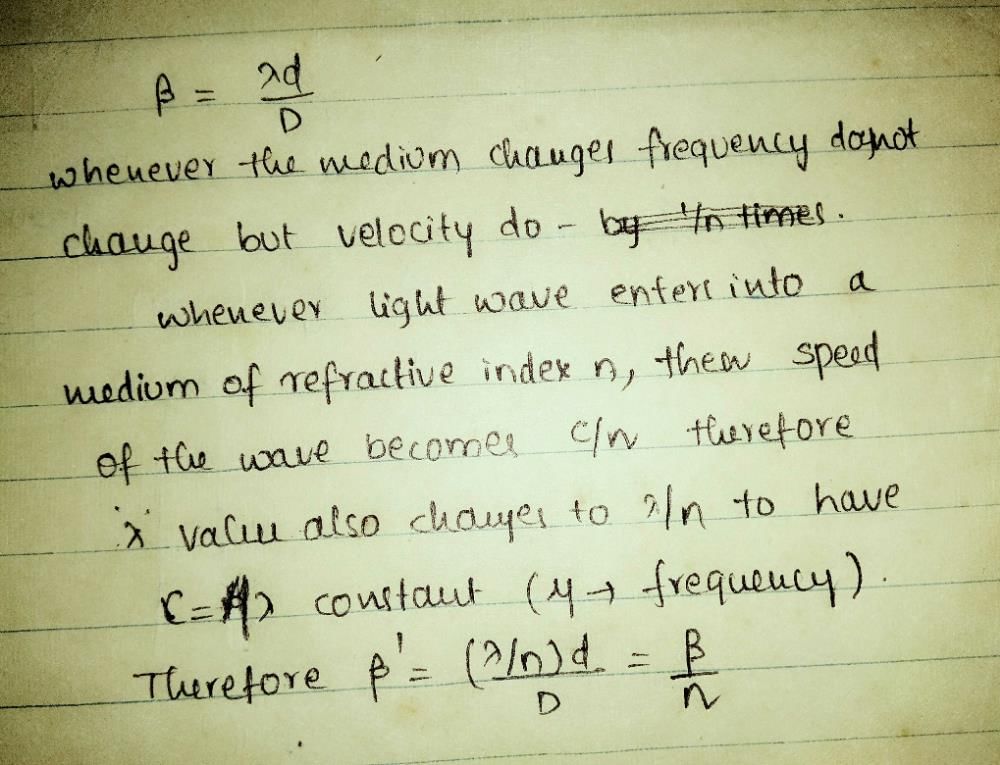 β = λd/D
whenever the medium changes frequency donot
change but velocity do - by 1/n times.
whenever light wave enters into a
medium of refractive index n, then speed
of the wave becomes c/n therefore
'λ' value also changes to λ/n to have
C=λ constant (ɥ → frequency).
Therefore β' = (λ/n)d/D = β/n